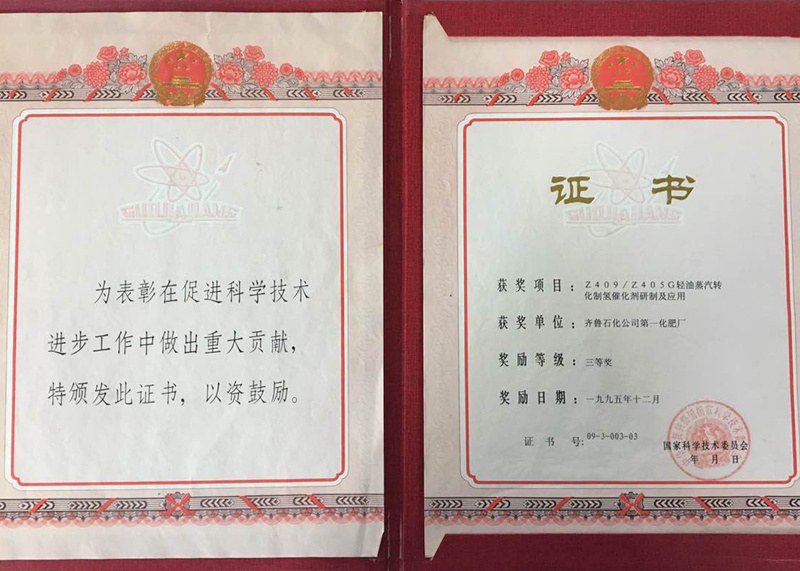 GUOJIAJIANG
为表彰在促进科学技术
进步工作中做出重大贡献，
特颁发此证书，以资鼓励。
GUOJIAJIANG
证 书
获奖项目：Z409/Z405G轻油蒸汽转
化制氢催化剂研制及应用
获奖单位：齐鲁石化公司第一化肥厂
奖励等级：三等奖
奖励日期：一九九五年十二月
证 书 号:09-3-003-03
国家科学技术委员会
年 月 日